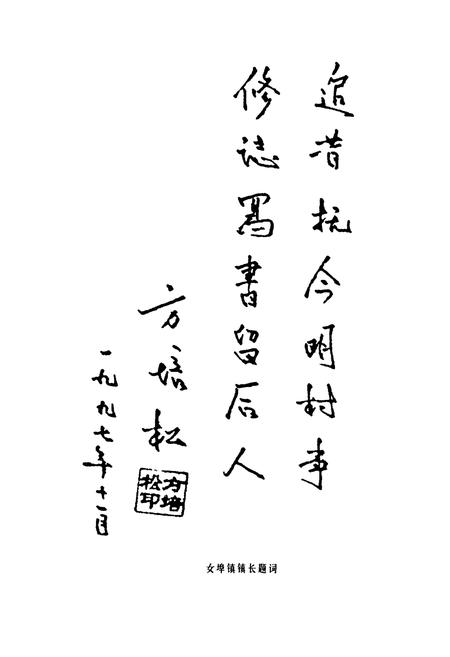 追昔抚今明村事
修誌写書留后人
方培松
一九九七年十一月
方培松印
女埠镇镇长题词